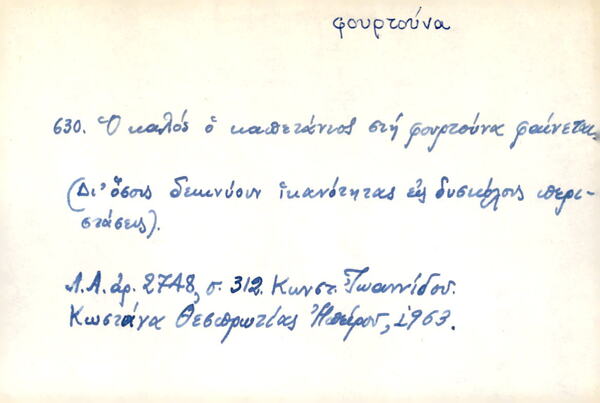 φουρτούνα
630. Ὁ καλός ὁ καπετάνιος στή φουρτούνα φαίνεται.
(Δι' ὅσους δεικνύουν ἱκανότητας εἰς δυσκόλους περι-
στάσεις).
Λ.Α. ἀρ. 2748, σ. 312. Κωνστ. Ἰωαννίδου.
Κωστάνα Θεσπρωτίας Ἠπείρου, 1963.